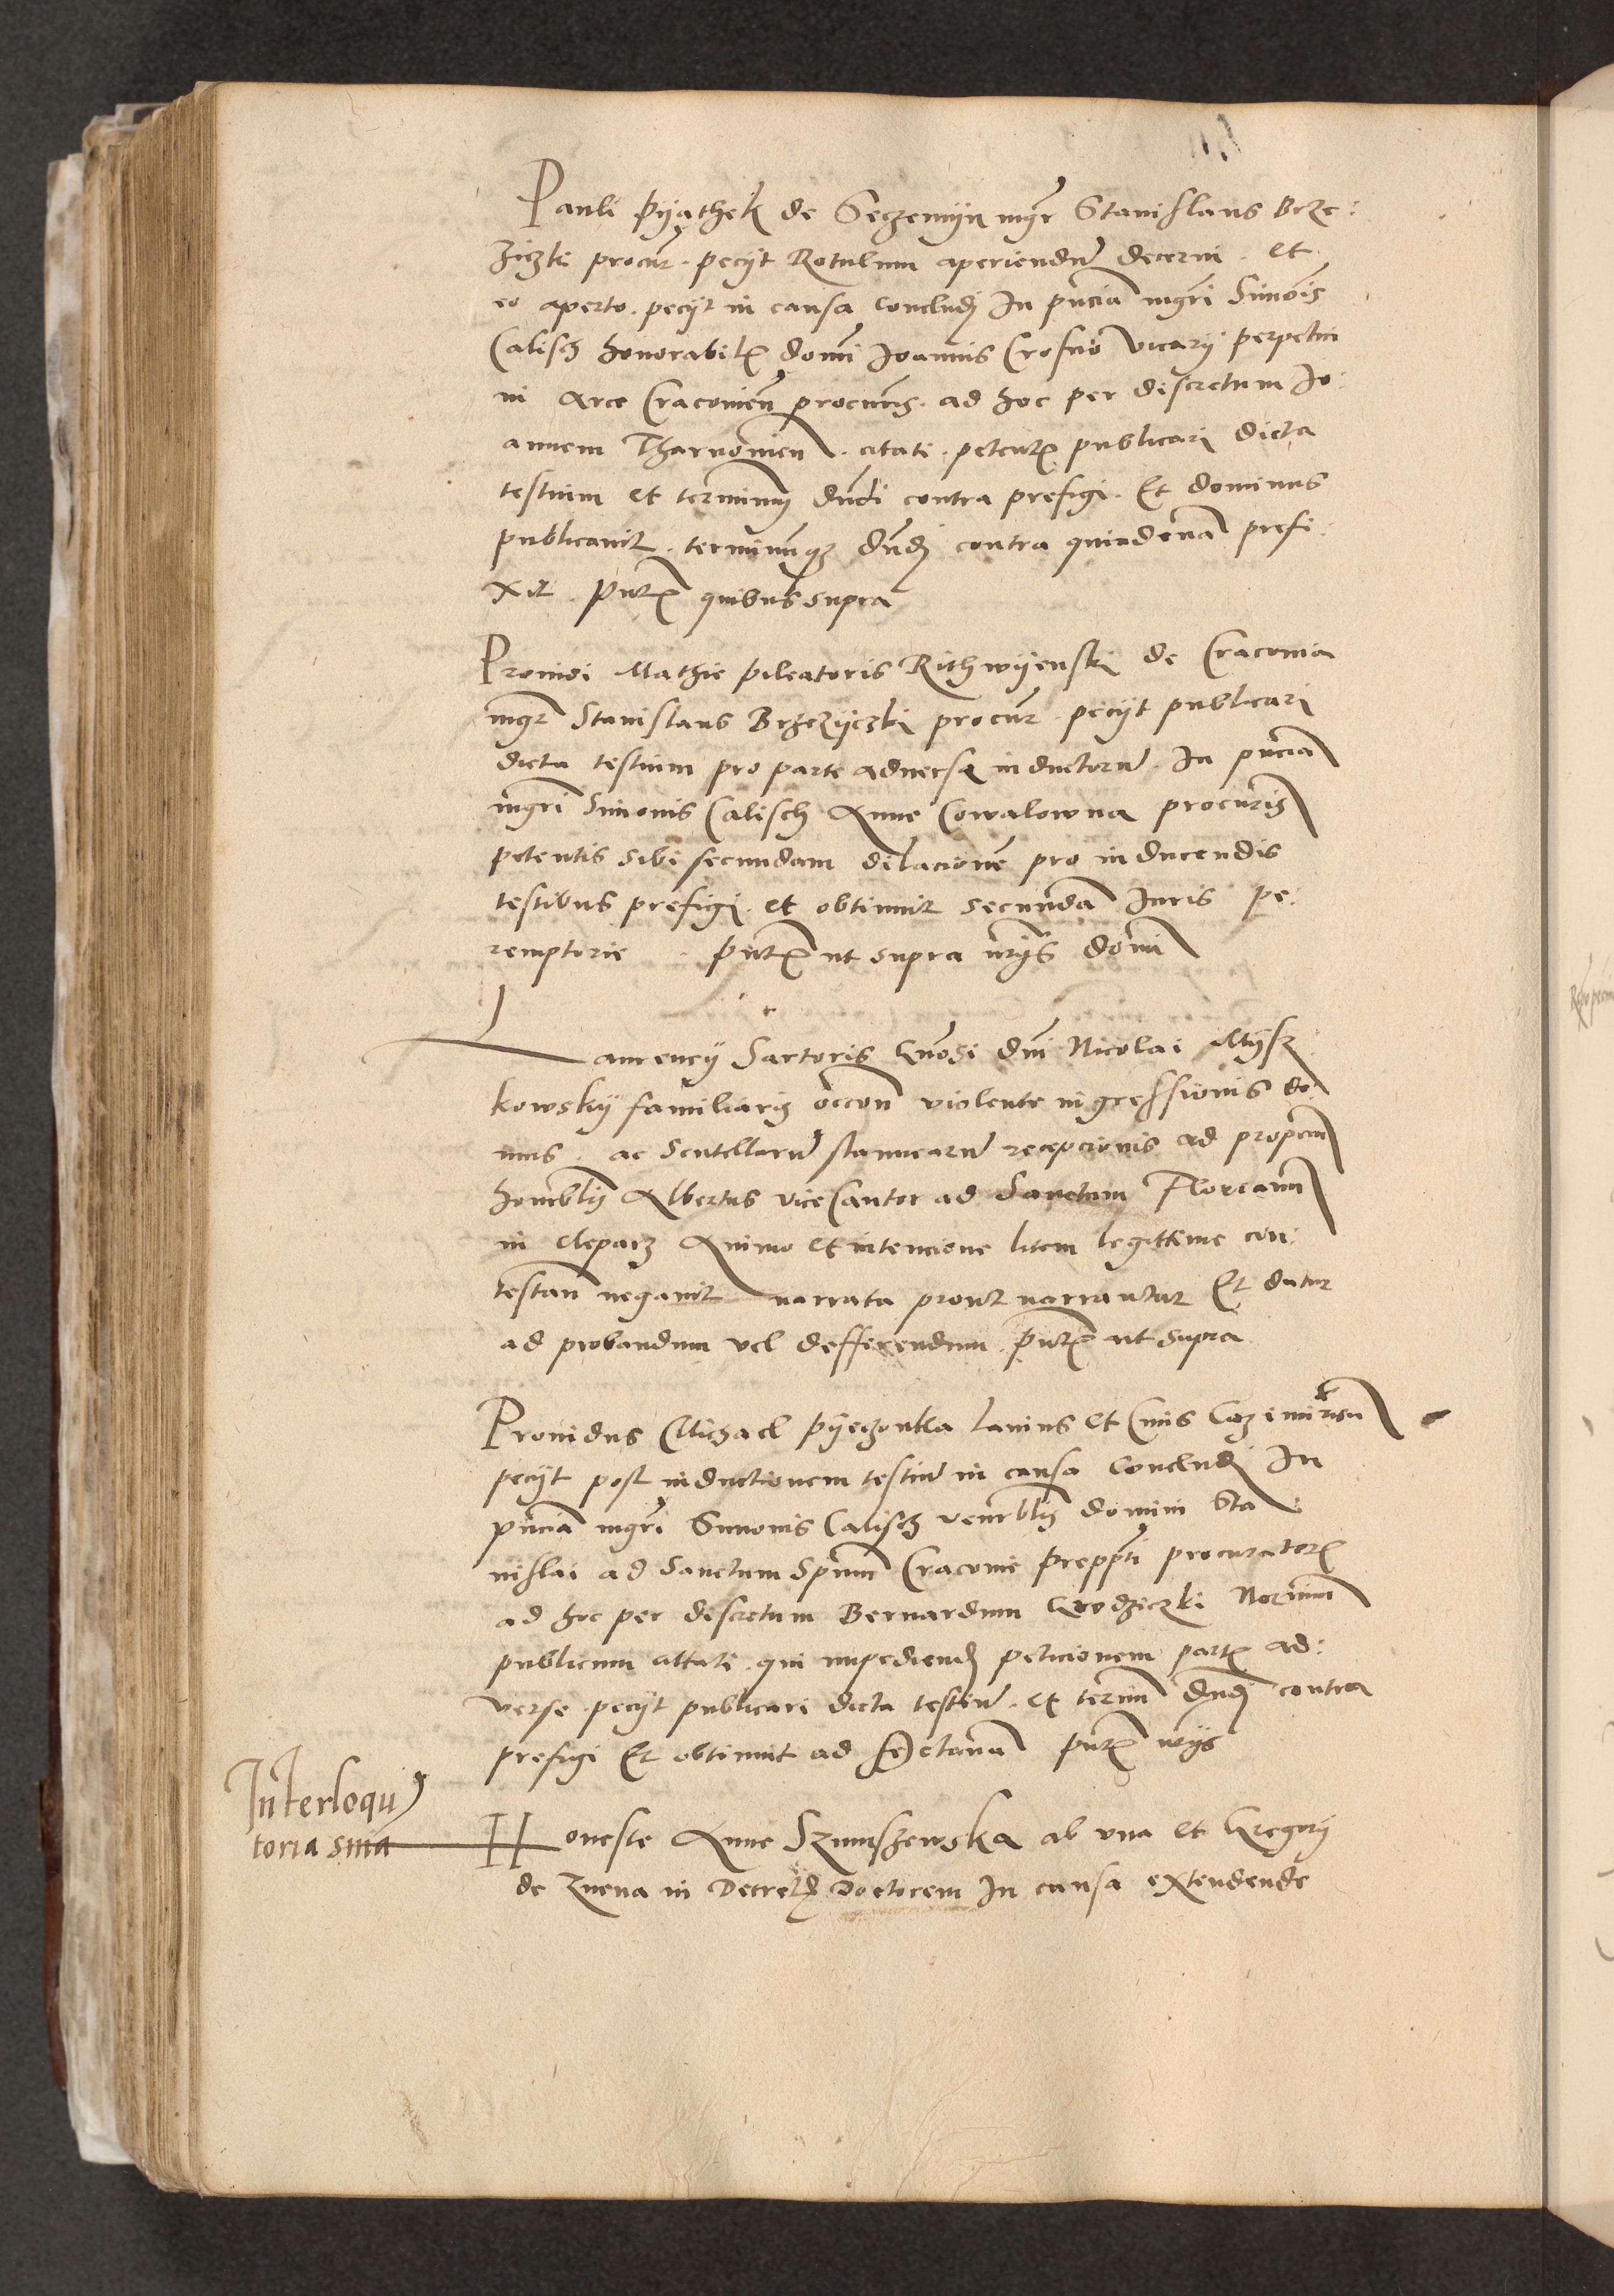 Pauli Pyąthek de Seczemyn mgr Stanislaus Brze:
ziczki procur. pecyt Rotulum aperiendum decerni. et
eo aperto. pecyt in causa concludj In pncia mgri Simonis
Calisch honorabilis domi Joannis Crosno vicarij perpetui
in Arce Cracovien procuris. ad hoc per discretum Jo:
annem Tharnovien. citati. petentis publicari dicta
testium et terminum dndi contra prefigi. Et dominus
publicavit. terminumque dndj contra quindenam prefi:
xit. Pntibus quibus supra
Providi Mathie pileatoris Rithwyenski de Cracovia
mgr Stanislaus Brzezyczki procur. pecyt publicari
dicta testium pro parte adversa inductorum. In pncia
mgri Simonis Calisch Anne Cowalowna procuris
petentis sibi secundam dilacionem pro inducendis
testibus prefigi. et obtinuit secundam Juris pe:
remptorie. Pntibus ut supra
Laurencij Sartoris Gnosi dni Nicolai Mysz
kowsky familiaris violente ingressionis do
mus. ac scutellarum stannearum recepcionis ad
honorabilis Albertus vice Cantor ad Sanctum Florianum
in Cleparz Animo et intencione litem legittime con:
testan negavit narrata prout narrantur Et datur
ad probandum vel defferendum. Pntibus ut supra
Providus Michael Pyeczonka lanius et Civis Cazimirien
pecyt post inductionem testium in causa concludj In
pncia mgri Simonis Calisch venerabilis domini Sta:
nislai ad Sanctum Spiritum Cracovie prepositi procuratoris
ad hoc per discretum Bernardum Grodziczki Notarium
publicum citati. qui impediendo peticionem partis ad:
verse. pecyt publicari dicta testium. et terminum dndj contra
prefigi Et obtinuit ad octavam Pntibus
Interloqu
toria snia
Honeste Anne Szumszewska ab una et Gregorij
de Znena in Decretis Doctorem In causa extendende